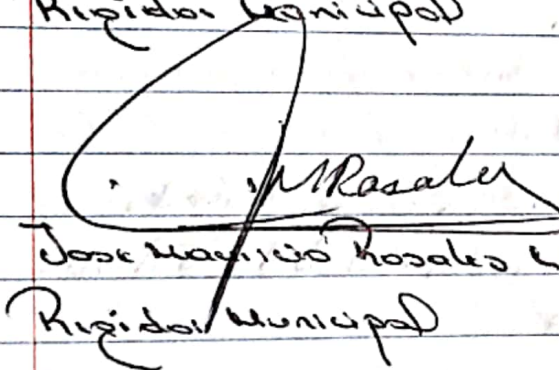 Regidor Municipal
MRosales
Jose Mauricio Rosales
Regidor Municipal